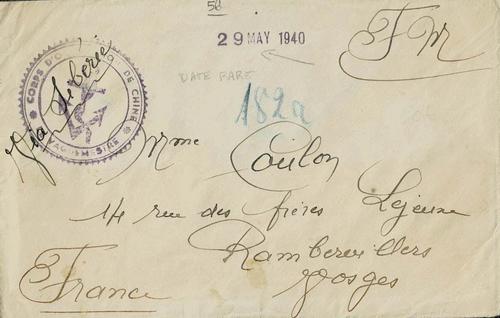 56
29 MAY 1940
F M
DATE RARE
CORPS D'OCCUPATION DE CHINE
VAGUEMESTRE
Via Siberie
182a
Mme Coulon
14 rue des frères Lejeune
Rambervillers
Vosges
France